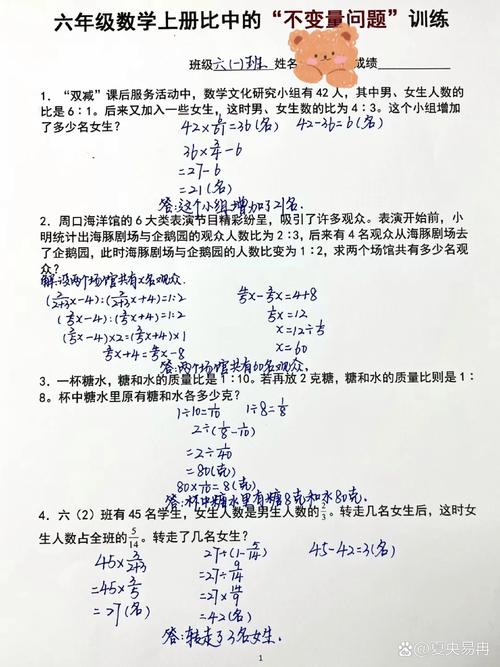 六年级数学上册比中的“不变量问题”训练
班级 六(一)班 姓名 成绩
1. “双减”课后服务活动中，数学文化研究小组有42人，其中男、女生人数的
比是6：1。后来又加入一些女生，这时男、女生数的比为4：3。这个小组增加
了多少名女生？ 42×6/7=36(名) 42-36=6(名)
36×3/4-6
=27-6
=21(名)
答:这个小组增加了21名.
2. 周口海洋馆的6大类表演节目精彩纷呈，吸引了许多观众。表演开始前，小
明统计出海豚剧场与企鹅园的观众人数比为2：3，后来有4名观众从海豚剧场去
了企鹅园，此时海豚剧场与企鹅园的人数比变为1：2，求两个场馆共有多少名观
众？
解:设两个场馆共有x名观众.
(2/2+3x-4):(3/2+3x+4)=1:2 4/5x-3/5x=4+8
(2/5x-4):(3/5x+4)=1:2 1/5x=12
(2/5x-4)×2=(3/5x+4)×1 x=12÷1/5
3/5x+4=4/5x-8 x=60
答:两个场馆共有60名观众.
3. 一杯糖水，糖和水的质量比是1：10。若再放2克糖，糖和水的质量比则是1：
8。杯中糖水里原有糖和水各多少克？
1÷10=1/10 1÷8=1/8
2÷(1/8-1/10)
=2÷1/40
=80(克)
80×1/10=8(克)
答:杯中糖水里有糖8克和水80克.
4. 六（2）班有45名学生，女生人数是男生人数的2/3。转走几名女生后，这时女
生人数占全班的5/14。转走了几名女生？
45×3/2+3 27÷(1-5/14) 45-42=3(名)
=45×3/5 =27÷9/14
=27(名) =27×14/9
=42(名)
答:转走了3名女生.
1
夏央易冉